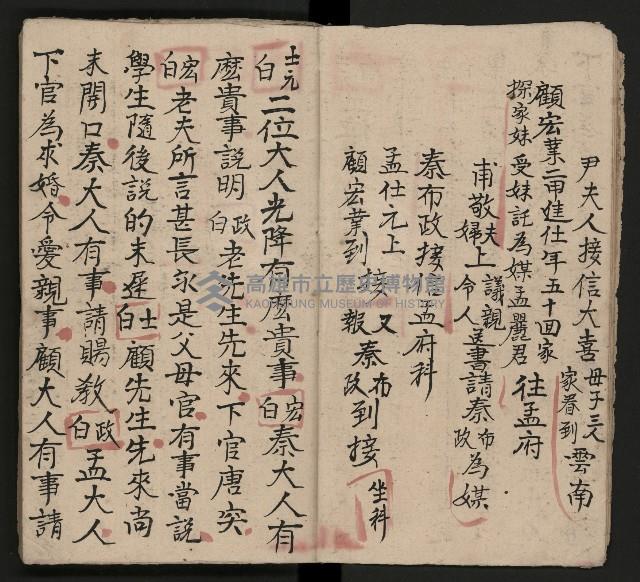 尹夫人接信大喜母子三人家眷到雲南
顧宏業二甲進仕年五十回家
探家妹受妹託為媒孟麗君往孟府
甫敬夫婦上議親令人送書請秦布政為媒
秦布政接孟府科
孟仕元上
顧宏業到接又報秦布政到接坐科
士元白二位大人光降有庅貴事宏白秦大人有
庅貴事說明政白老先生先來下官唐突
宏白老夫所言甚長永是父母官有事當說
學生隨後說的未遲士白顧先生先來尚
未開口秦大人有事請賜教政白孟大人
下官為求婚令愛親事顧大人有事請
高雄市立歷史博物館
KAOHSIUNG MUSEUM OF HISTORY